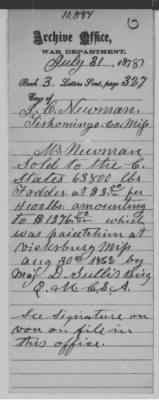 10.084
6
Archive Office,
WAR DEPARTMENT,
July 31, 1878
Book 3. Letters Sent, page 327
Case of
J. C. Newman.
Tishomingo Co Miss
Mr Newman
Sold to the C.
States 63800 lbs
Fodder at $3 per
100 lbs amounting
to $1276 which
was paid to him at
Vicksburg Miss
Aug 30th 1862 by
Maj. D. Sullivan
Q. M. C. S. A.
See signature on
vou on file in
this office.